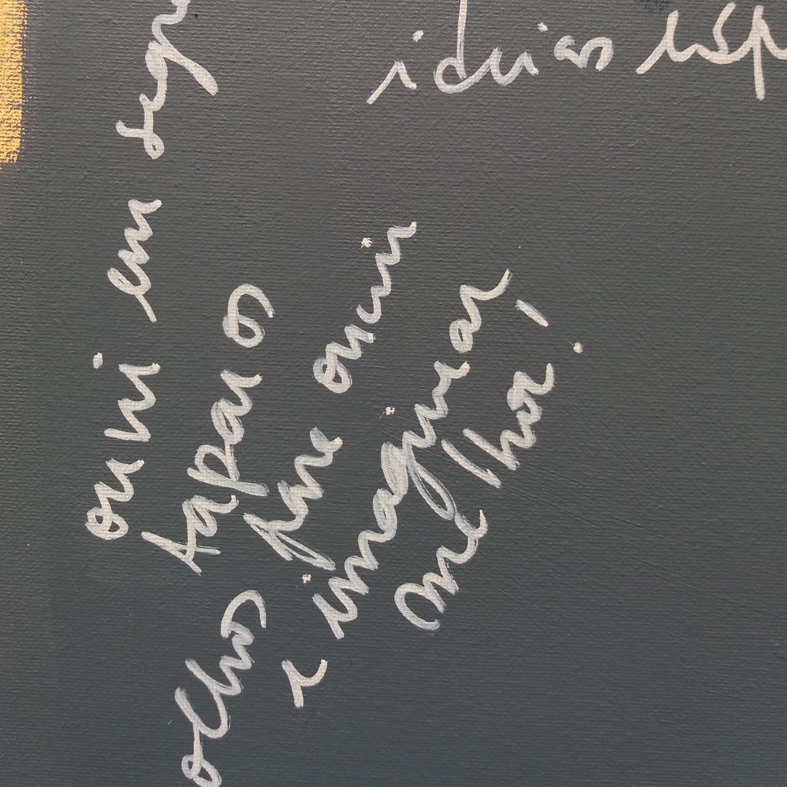 ideias
ouvi em
tapar os
olhos para ouvir
e imaginar
melhor!